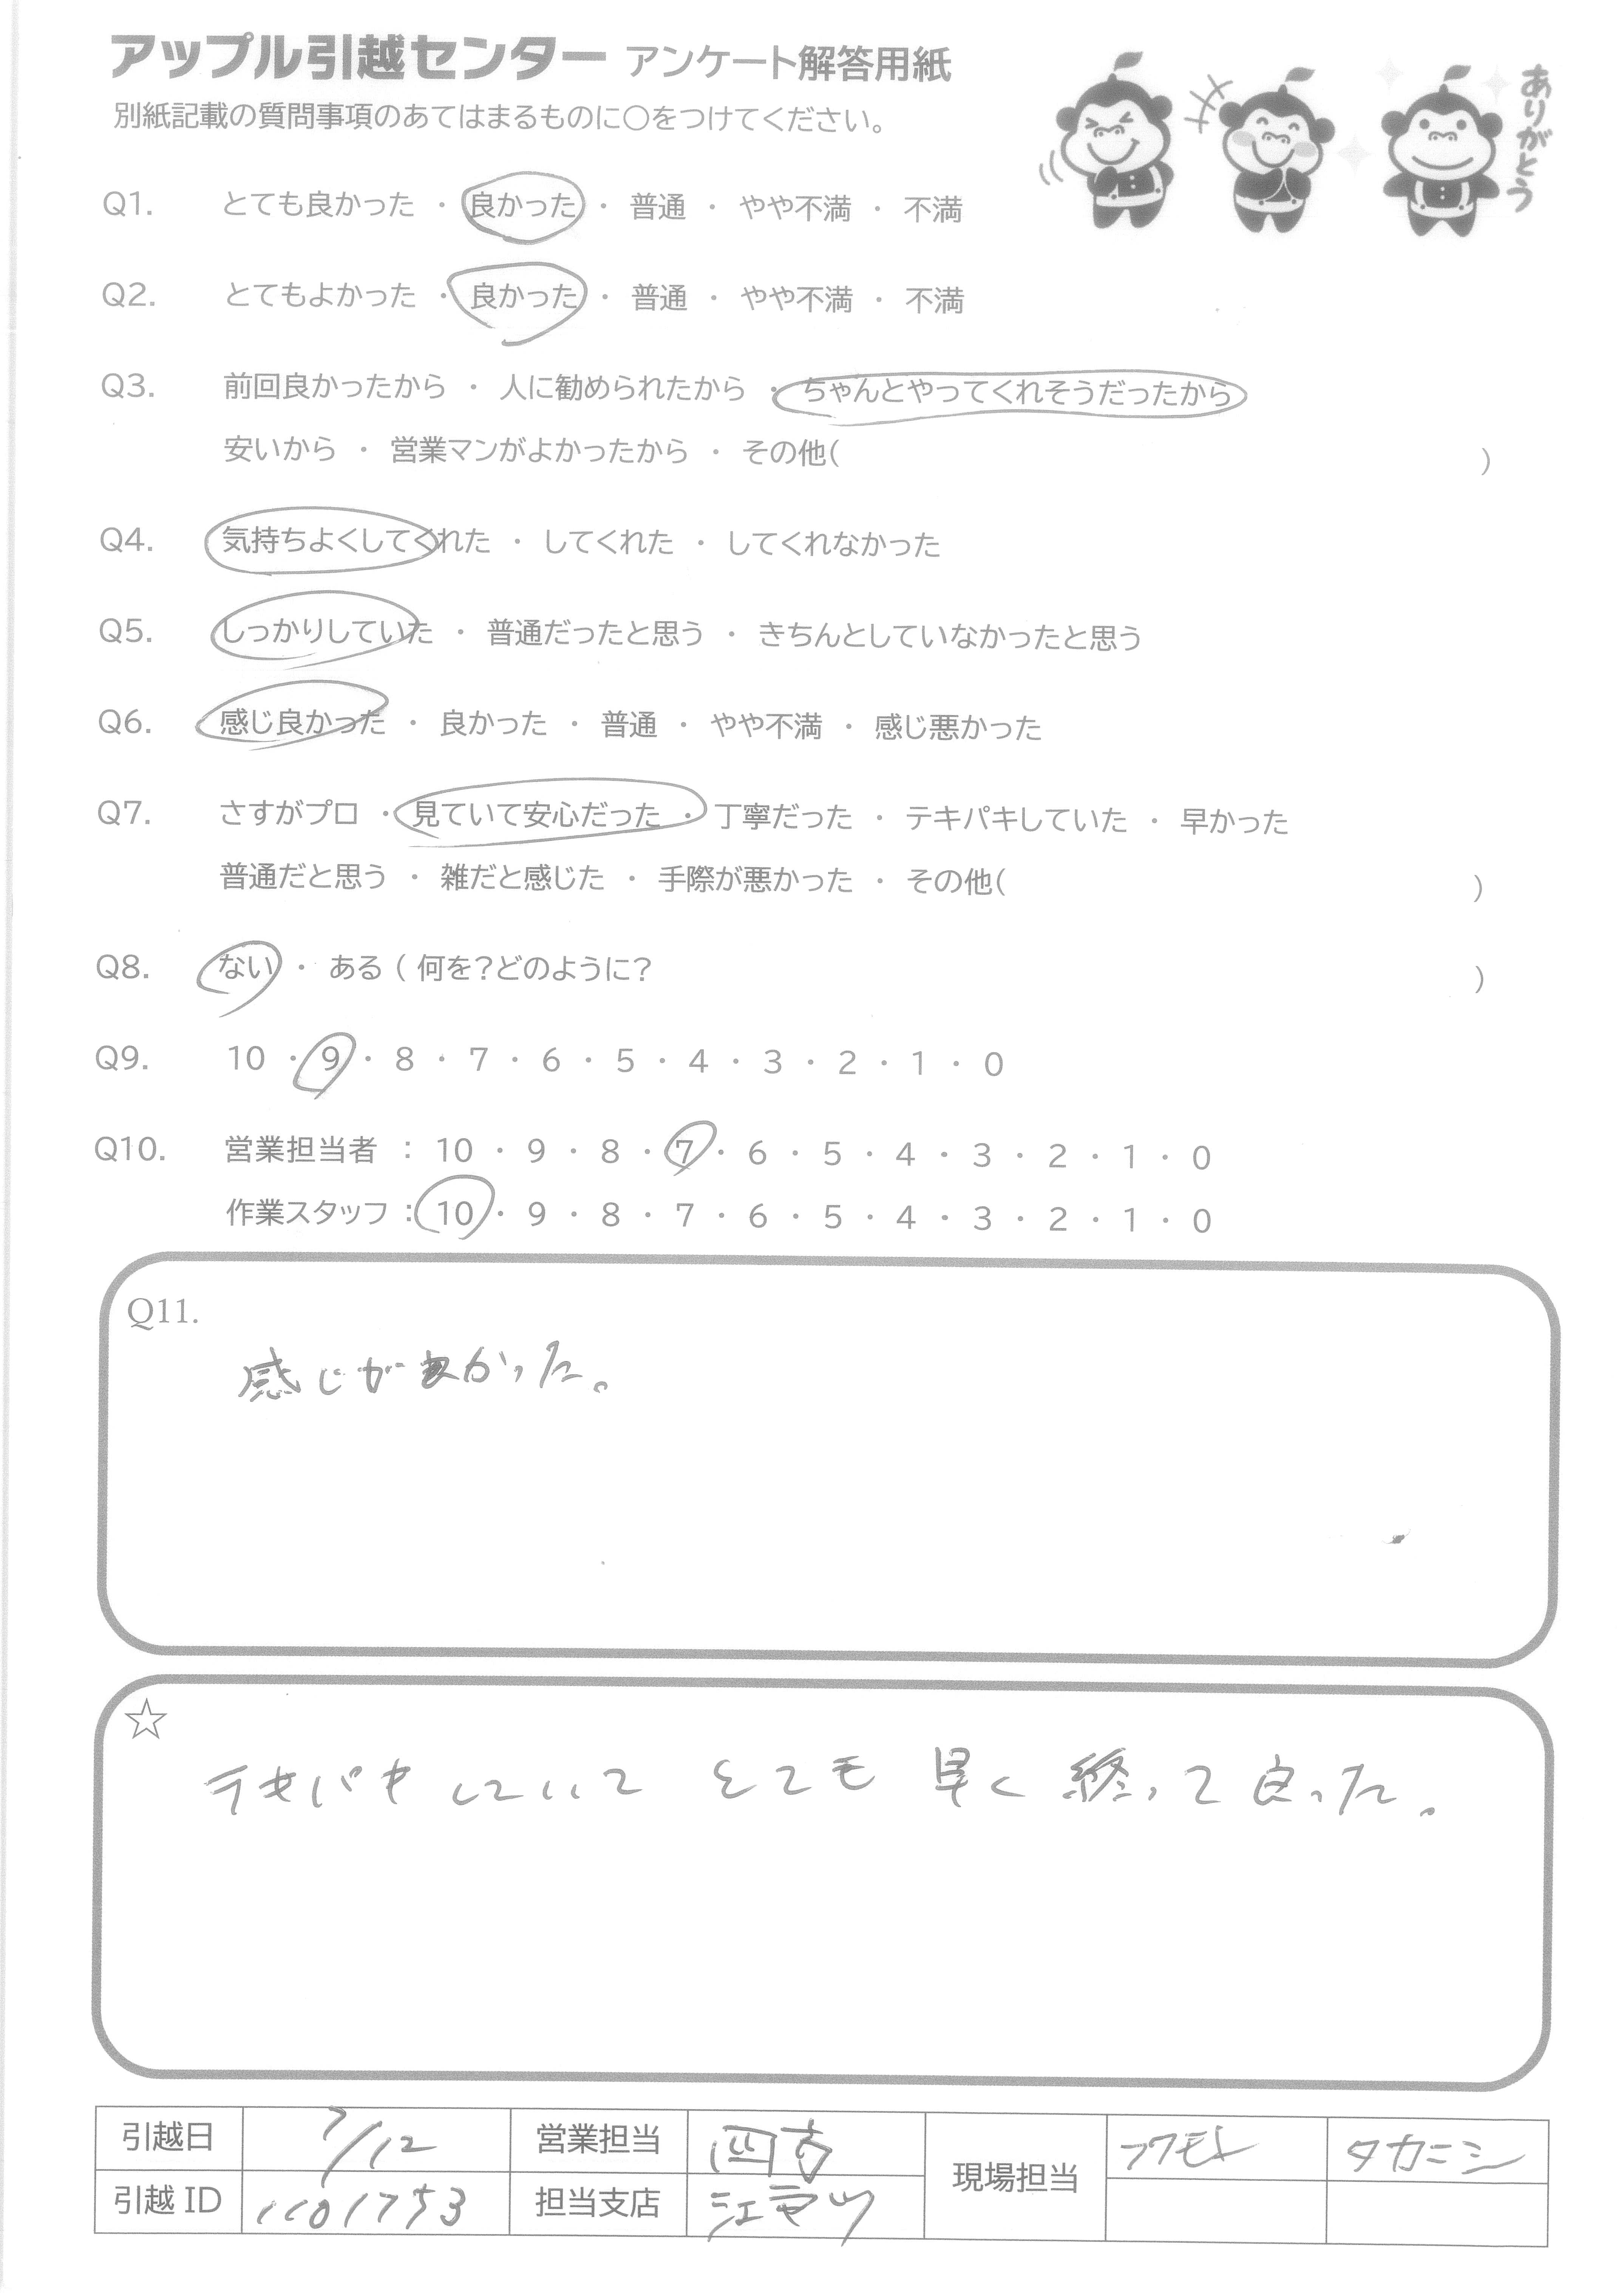 アップル引越センター アンケート解答用紙
別紙記載の質問事項のあてはまるものに○をつけてください。
ありがとう
Q1. とても良かった ・ 良かった ・ 普通 ・ やや不満 ・ 不満
Q2. とてもよかった ・ 良かった ・ 普通 ・ やや不満 ・ 不満
Q3. 前回良かったから ・ 人に勧められたから ・ ちゃんとやってくれそうだったから
安いから ・ 営業マンがよかったから ・ その他( )
Q4. 気持ちよくしてくれた ・ してくれた ・ してくれなかった
Q5. しっかりしていた ・ 普通だったと思う ・ きちんとしていなかったと思う
Q6. 感じ良かった ・ 良かった ・ 普通 ・ やや不満 ・ 感じ悪かった
Q7. さすがプロ ・ 見ていて安心だった ・ 丁寧だった ・ テキパキしていた ・ 早かった
普通だと思う ・ 雑だと感じた ・ 手際が悪かった ・ その他( )
Q8. ない ・ ある ( 何を?どのように? )
Q9. 10 ・ 9 ・ 8 ・ 7 ・ 6 ・ 5 ・ 4 ・ 3 ・ 2 ・ 1 ・ 0
Q10. 営業担当者 : 10 ・ 9 ・ 8 ・ 7 ・ 6 ・ 5 ・ 4 ・ 3 ・ 2 ・ 1 ・ 0
作業スタッフ : 10 ・ 9 ・ 8 ・ 7 ・ 6 ・ 5 ・ 4 ・ 3 ・ 2 ・ 1 ・ 0
Q11.
感じが良かった。
☆
テキパキしていて とても 早く 終って良った。
引越日 7/12 営業担当 現場担当 タカニシ
引越 ID 1101753 担当支店